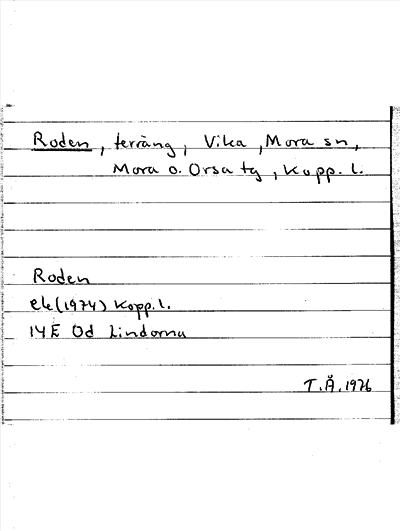 Roden, terräng, Vika, Mora sn,
Mora o. Orsa tg, Kopp. l.
Roden
ek(1974) Kopp. l.
14E 0d Lindorna
T.Å. 1976